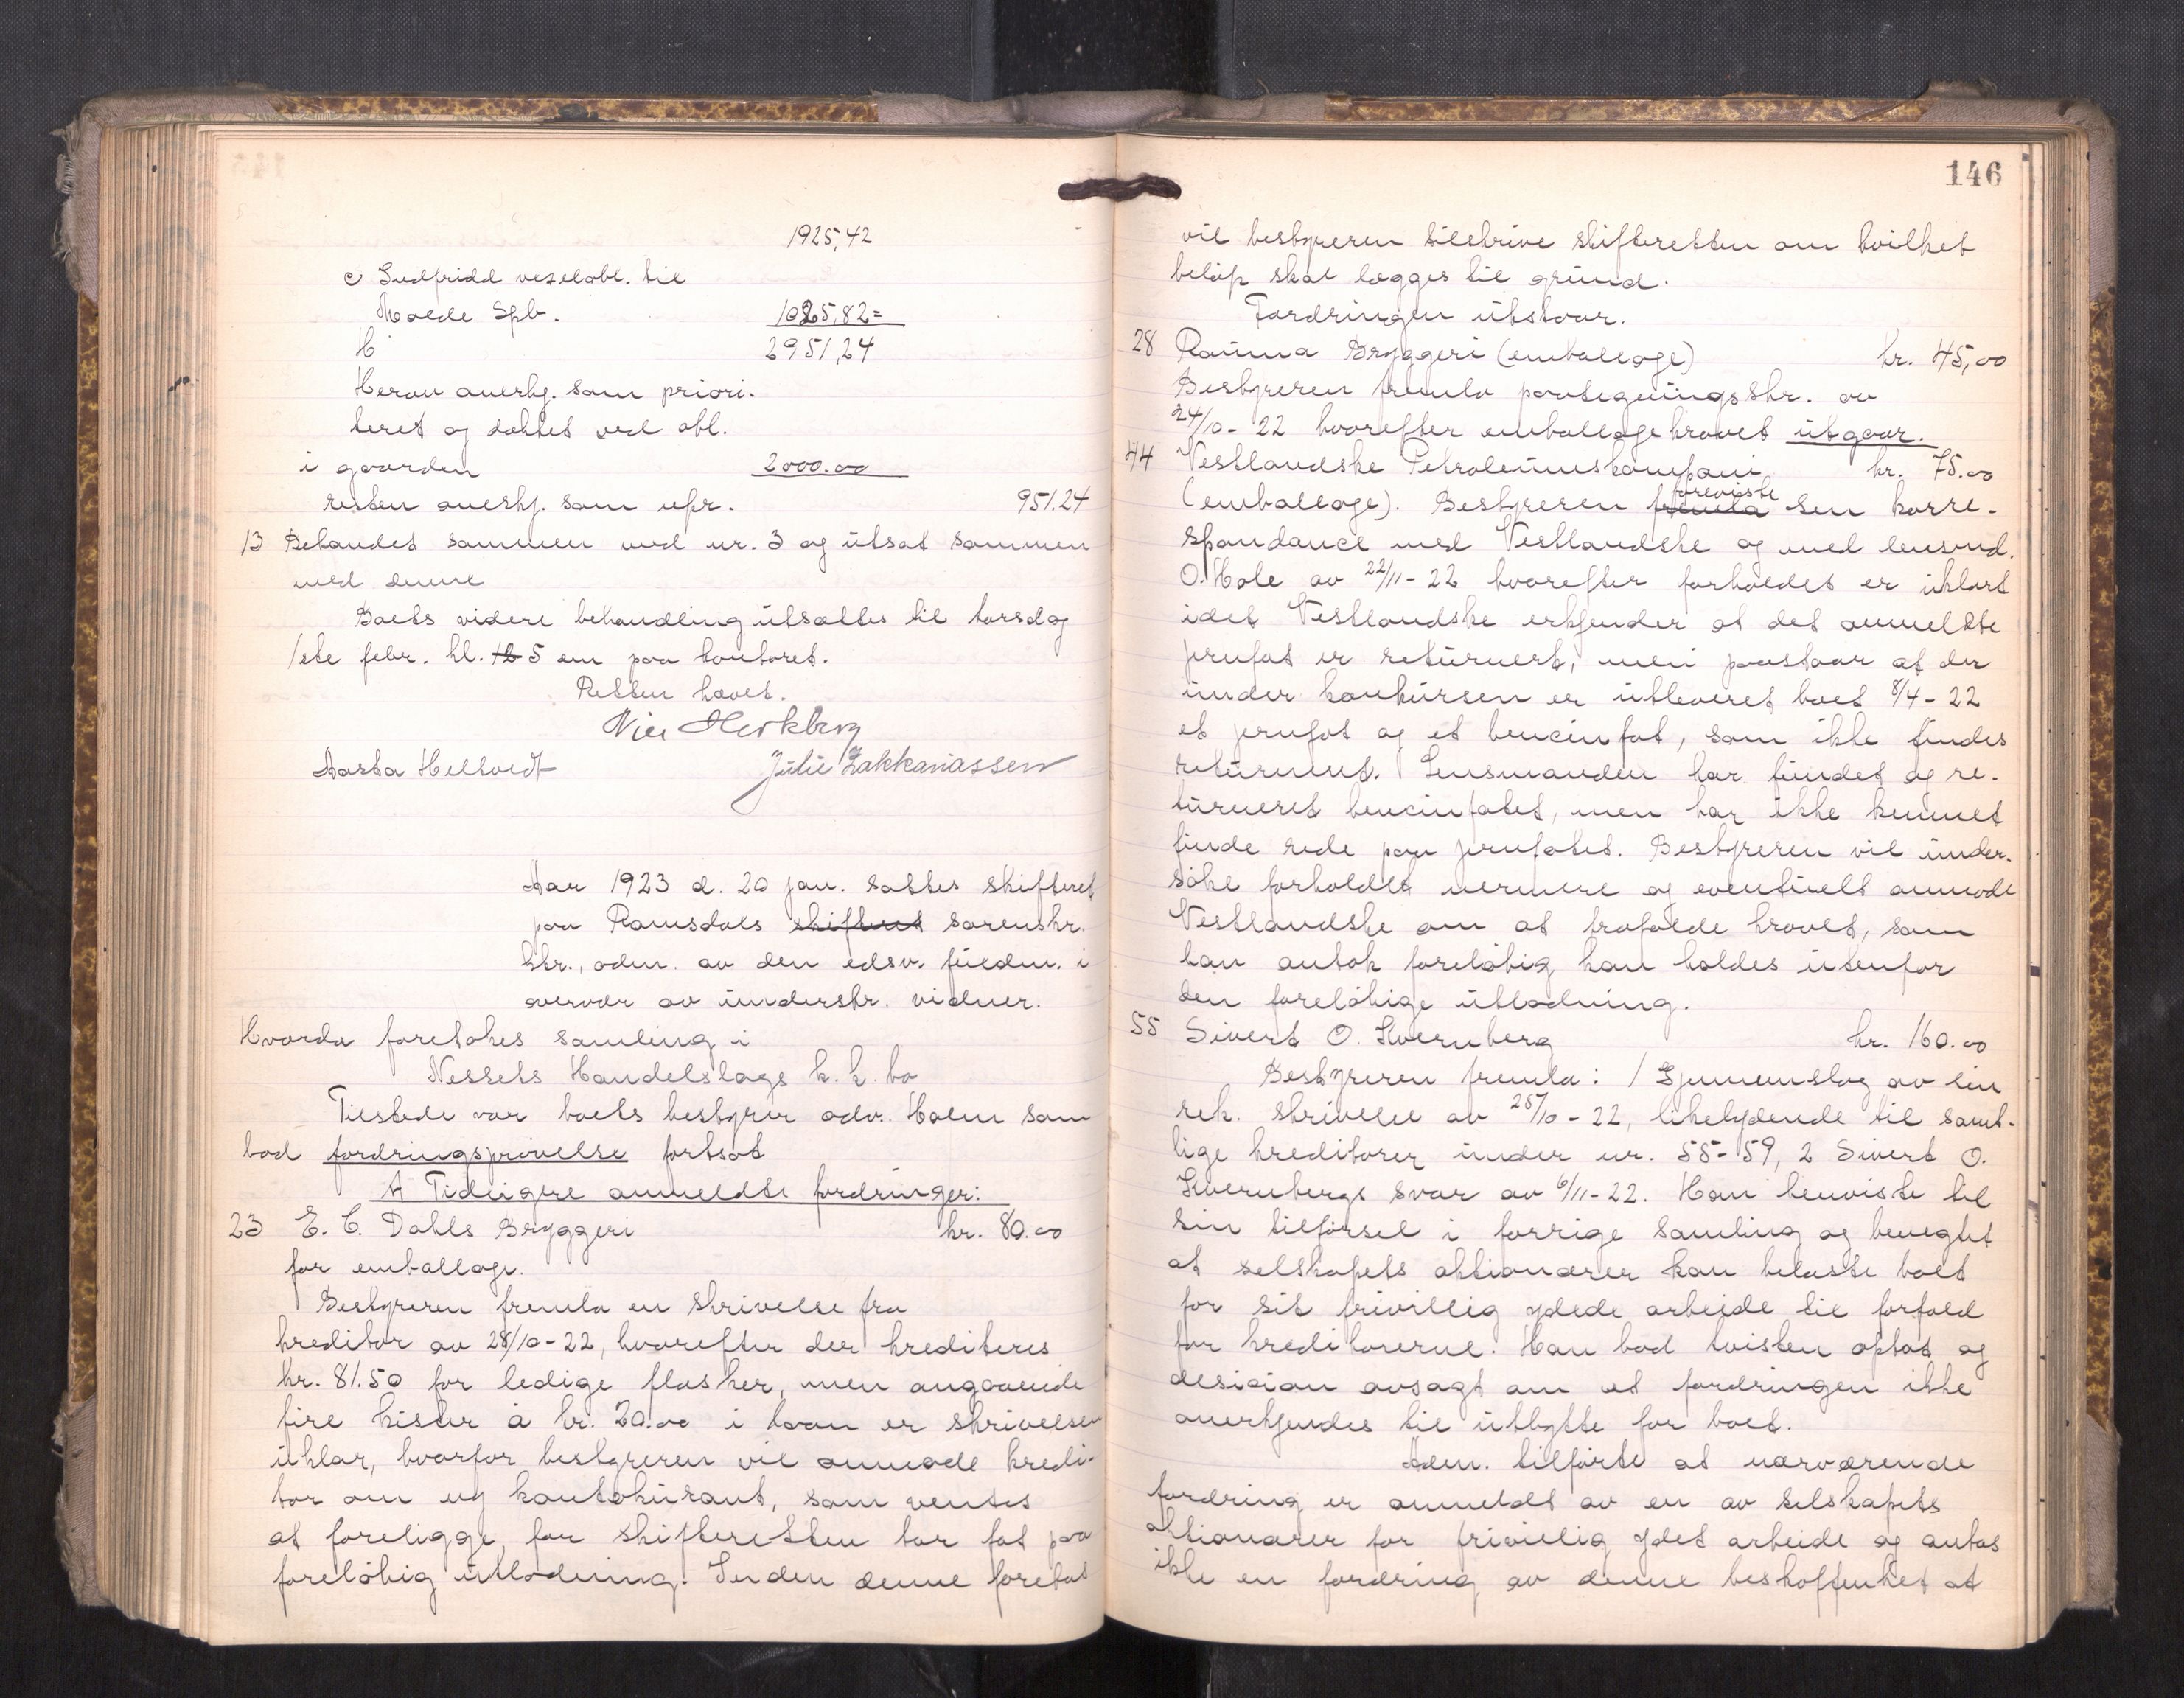 1925,42
c Indfridd vexelobl. til
Molde Spb. 1025,82=
2951,24
Herav anerkj. som priori-
teret og dækket ved obl.
i gaarden 2000.00
resten anerkj. som upr. 951.24
13 Behandlet sammen med nr. 3 og utsat sammen
med denne
Boets videre behandling utsættes til torsdag
1ste febr. kl. 12 5 em paa kontoret.
Retten hævet.
Aasta Heltvedt Julie Zakkariassen
Aar 1923 d. 20 jan. sattes skifteret
paa Romsdals skifteret sorenskr.
ktr., adm. av den edsv. fuldm. i
overvær av underskr. vidner.
Hvorda foretokes samling i
Nessets Handelslags k.k. bo
Tilstede var boets bestyrer adv. Holm som
bad fordringsprøvelse fortsat
A Tidligere anmeldte fordringer:
23 E. C. Dahls Bryggeri kr. 80.00
for emballage.
Bestyreren fremla en skrivelse fra
kreditor av 28/10-22, hvorefter der krediteres
kr. 81.50 for ledige flasker, men angaaende
fire kister à kr. 20.00 i tvan er skrivelsen
uklar, hvorfor bestyreren vil anmode kredi-
tor om ny kontokurant, som ventes
at foreligge før skifteretten tar fat paa
foreløbig utlodning. Inden denne foretas
146
vil bestyreren tilskrive skifteretten om hvilket
beløp skal lægges til grund.
Fordringen utstaar.
28 Rauma Bryggeri (emballage) kr. 45,00
Bestyreren fremla paategningsskr. av
24/10-22 hvorefter emballagekravet utgaar.
44 Vestlandske Petroleumskompani kr. 75.00
foreviste
(emballage). Bestyreren fremla sin korre-
spondance med Vestlandske og med lensmd.
O. Hole av 22/11-22 hvorefter forholdet er uklart
idet Vestlandske erkjender at det anmeldte
jernfat er returnert, men paastaar at der
under konkursen er utleveret boet 8/4-22
et jernfat og et bencinfat, som ikke findes
returneret. Lensmanden har fundet og re-
turneret bencinfatet, men har ikke kunnet
finde rede paa jernfatet. Bestyreren vil under-
søke forholdet nermere og eventuelt anmode
Vestlandske om at frafalde kravet, som
han antok foreløbig kan holdes utenfor
den foreløbige utlodning.
55 Sivert O. Kvernberg kr. 160.00
Bestyreren fremla: 1 Gjennemslag av sin
rek. skrivelse av 25/10-22, likelydende til samt-
lige kreditorer under nr. 55-59, 2 Sivert O.
Kvernbergs svar av 6/11-22. Han henviste til
sin tilførsel i forrige samling og benegtet
at selskapets aktionærer kan belaste boet
for sit frivillig ydede arbeide til forfald
for kreditorerne. Han bad tvisten optat og
desision avsagt om at fordringen ikke
anerkjendes til utbytte for boet.
Adm. tilførte at nærværende
fordring er anmeldt av en av selskapets
aktionærer for frivillig ydet arbeide og antas
ikke en fordring av denne beskaffenhet at